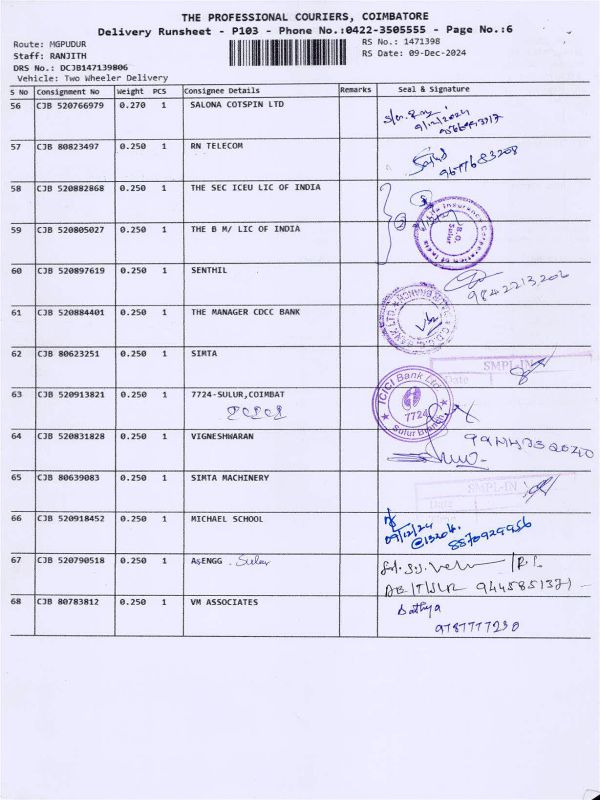 THE PROFESSIONAL COURIERS, COIMBATORE
Delivery Runsheet - P103 - Phone No.:0422-3505555 - Page No.:6
Route: MGPUDUR
RS No.: 1471398
Staff: RANJITH
RS Date: 09-Dec-2024
DRS No.: DCJB147139806
Vehicle: Two Wheeler Delivery
S No Consignment No Weight PCS Consignee Details Remarks Seal & Signature
56 CJB 520766979 0.270 1 SALONA COTSPIN LTD
57 CJB 80823497 0.250 1 RN TELECOM
9677683208
58 CJB 520882868 0.250 1 THE SEC ICEU LIC OF INDIA
Life Insurance Corporation of India
B.O.
Sulur
59 CJB 520805027 0.250 1 THE B M/ LIC OF INDIA
60 CJB 520897619 0.250 1 SENTHIL
61 CJB 520884401 0.250 1 THE MANAGER CDCC BANK
62 CJB 80623251 0.250 1 SIMTA
SMPL-IN
Date
63 CJB 520913821 0.250 1 7724-SULUR,COIMBAT
ICICI Bank Ltd
7724
Sulur Branch
64 CJB 520831828 0.250 1 VIGNESHWARAN
65 CJB 80639083 0.250 1 SIMTA MACHINERY
SMPL-IN
Date
66 CJB 520918452 0.250 1 MICHAEL SCHOOL
09/12/24
8870929956
67 CJB 520790518 0.250 1 A5ENGG Sulur
68 CJB 80783812 0.250 1 VM ASSOCIATES
Sathya
9787777230